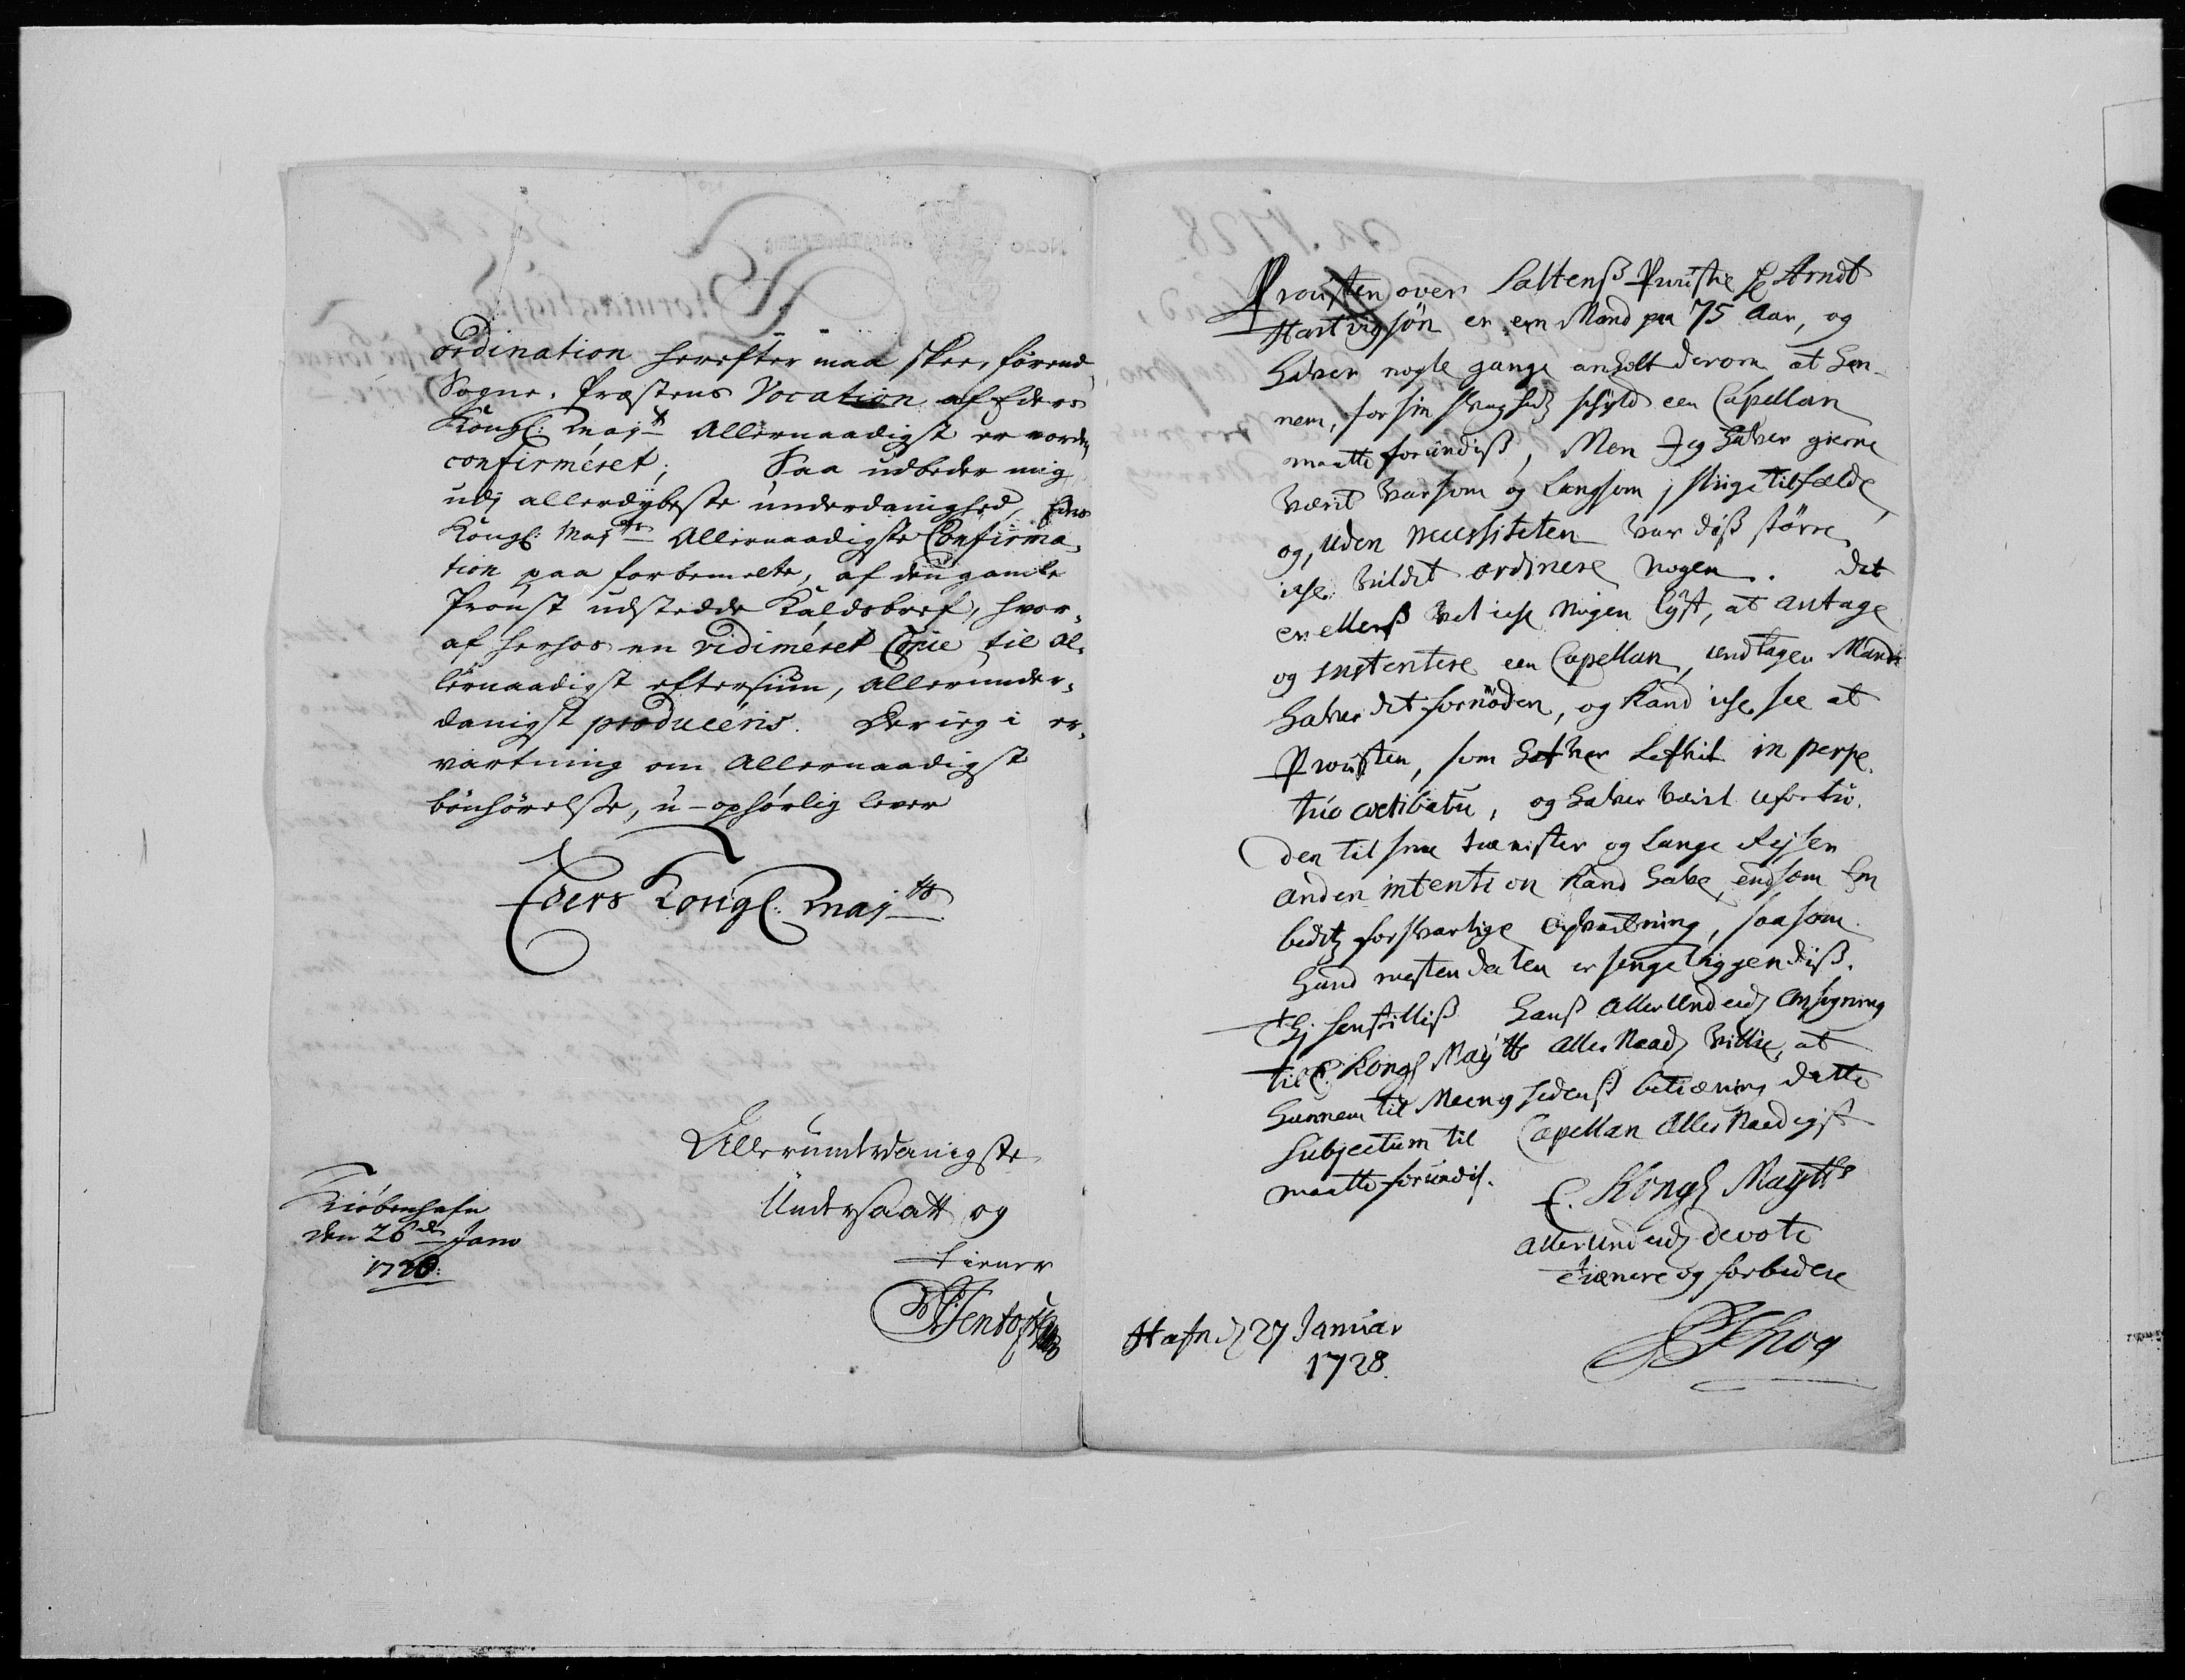 ordination herefter maa skee, førend
Sogne-Præstens Vocation af Eders
Kongl: Maj:tt Allernaadigst er vorden
confirmeret; Saa udbeder mig
udj allerdybeste underdanighed, Eders
Kongl: Maj:tts Allernaadigste Confirma-
tion paa forbemelte, af den gamle
Proust udstedde Kaldsbref, hvor-
af herhos en vidimeret Copie til al-
lernaadigst eftersiun, allerunder-
danigst produceris. Der ieg i er-
vartning om Allernaadigst
bønhørelse, u-ophørlig lever
Eders Kongl: Maj:tts
Allerunderdanigste
Undersaatt og
tiener
Kiøbenhafn
den 26de Janv
1728:
Prousten over Saltenß Prousti Hr Arndt
Hartvigsøn er een Mand paa 75 Aar, og
haver nogle gange anholt derom at han-
nem, for sin svagheds skyld een Capellan
maatte forundiß, Men Jeg haver gierne
været varsom og langsom j slige tilfælde,
og, uden necessiteten var diß større,
iche vildet ordinere nogen. Det
er ellerß vel iche nogen lyst, at antage
og sustentere een Capellan, undtagen Mand
haver det fornöden, og kand iche see at
Prousten, som hafver lefvit in perpe-
tuo coelibatu, og haver været ufortrö-
den til sine tienister og lange Rejser
anden intention kand have, end som Em-
beditz forsvarlige opvartning, saasom
hand mesten deelen er sengeliggendiß.
Thj henstilliß hanß allerund: ansøgning
til E. Kongl Maytts aller Naad: Villie, at
hannem til Meenighedenß betiening dette
Subjectum til Capellan Aller Naadigst
maatte forundis.
E. Kongl Maytts
allerund: devote
tiænere og forbedere
Hafn: d 27 Januar
1728.